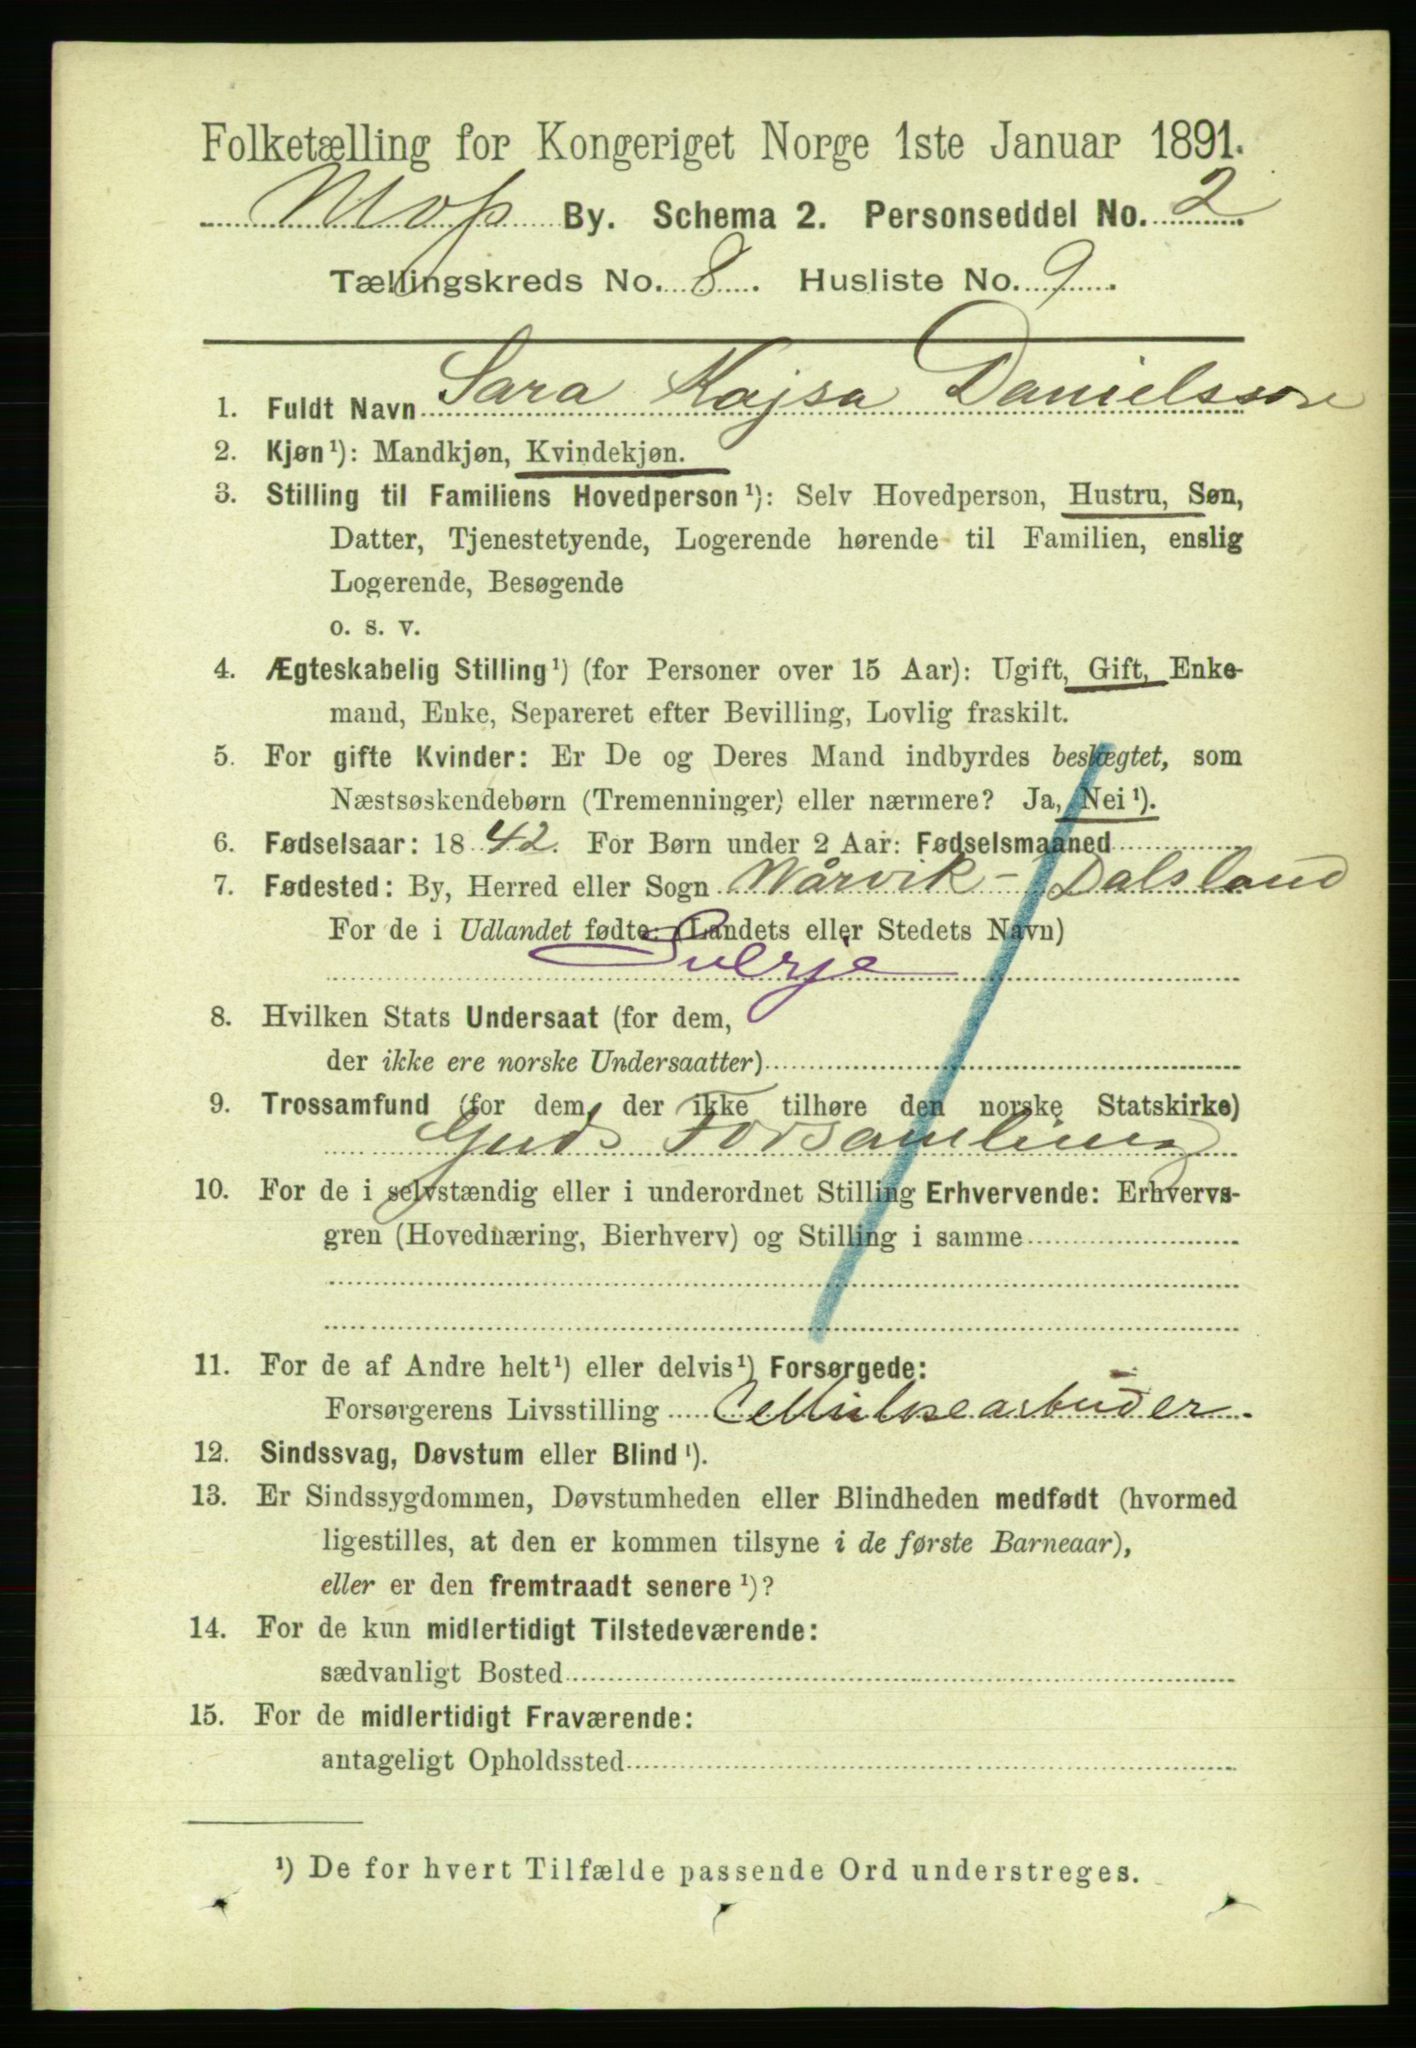 Folketælling for Kongeriget Norge 1ste Januar 1891.
Moss By. Schema 2. Personseddel No. 2
Tællingskreds No. 8. Husliste No. 9.
1. Fuldt Navn Sara Kajsa Danielsson
2. Kjøn¹): Mandkjøn, Kvindekjøn.
3. Stilling til Familiens Hovedperson¹): Selv Hovedperson, Hustru, Søn,
Datter, Tjenestetyende, Logerende hørende til Familien, enslig
Logerende, Besøgende
o. s. v.
4. Ægteskabelig Stilling¹) (for Personer over 15 Aar): Ugift, Gift, Enke-
mand, Enke, Separeret efter Bevilling, Lovlig fraskilt.
5. For gifte Kvinder: Er De og Deres Mand indbyrdes beslægtet, som
Næstsøskendebørn (Tremenninger) eller nærmere? Ja, Nei¹).
6. Fødselsaar: 1842. For Børn under 2 Aar: Fødselsmaaned
7. Fødested: By, Herred eller Sogn Wårvik - Dalsland
For de i Udlandet fødte: (Landets eller Stedets Navn)
Sverje
8. Hvilken Stats Undersaat (for dem,
der ikke ere norske Undersaatter)
9. Trossamfund (for dem, der ikke tilhøre den norske Statskirke)
Guds Forsamling
10. For de i selvstændig eller i underordnet Stilling Erhvervende: Erhvervs-
gren (Hovednæring, Bierhverv) og Stilling i samme
11. For de af Andre helt¹) eller delvis¹) Forsørgede:
Forsørgerens Livsstilling Cellulosearbuder.
12. Sindssvag, Døvstum eller Blind¹).
13. Er Sindssygdommen, Døvstumheden eller Blindheden medfødt (hvormed
ligestilles, at den er kommen tilsyne i de første Barneaar),
eller er den fremtraadt senere¹)?
14. For de kun midlertidigt Tilstedeværende:
sædvanligt Bosted
15. For de midlertidigt Fraværende:
antageligt Opholdssted
¹) De for hvert Tilfælde passende Ord understreges.